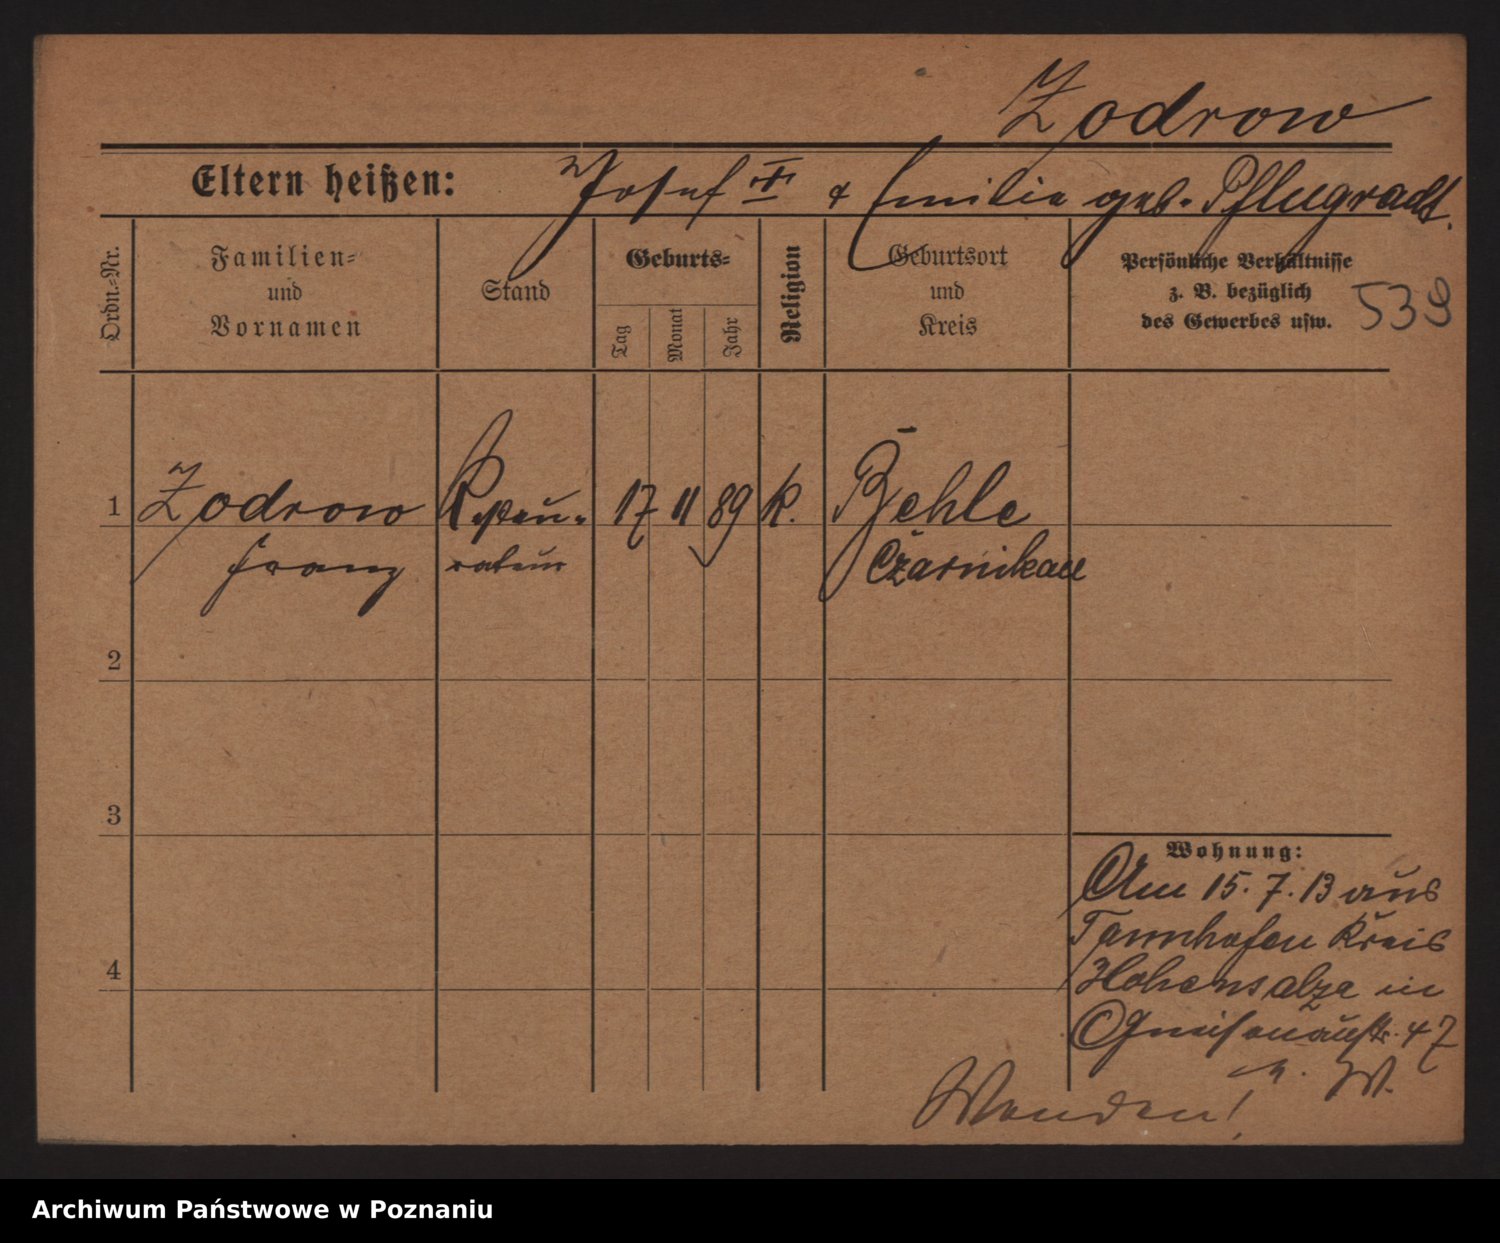 Zodrow
Eltern heißen: Josef I & Emilie geb. Pflugradt.
Ordn.=Nr.
Familien=
und
Vornamen
Stand
Geburts=
Tag
Monat
Jahr
Religion
Geburtsort
und
Kreis
Persönliche Verhältnisse
z. B. bezüglich
des Gewerbes usw.
539
1 Zodrow Restau- 17 11 89 k. Behle
Franz rateur Czarnikau
2
3
4
Wohnung:
Am 15. 7. 13 aus
Tannhofen Kreis
Hohensalza in
Gneisenaustr. 47
Wenden!
Archiwum Państwowe w Poznaniu